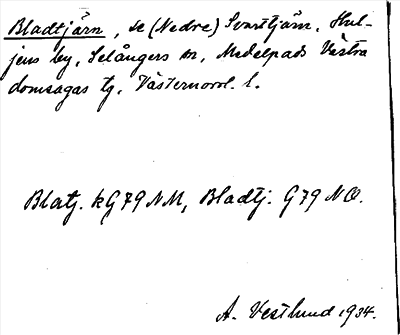 Bladtjärn, se (Nedre) Svarttjärn, Hul-
jens by, Selångers sn, Medelpads Västra
domsagas tg, Västernorrl. l.
Blatj. kG79NM, Bladtj. G79NO.
A. Vestlund 1934.